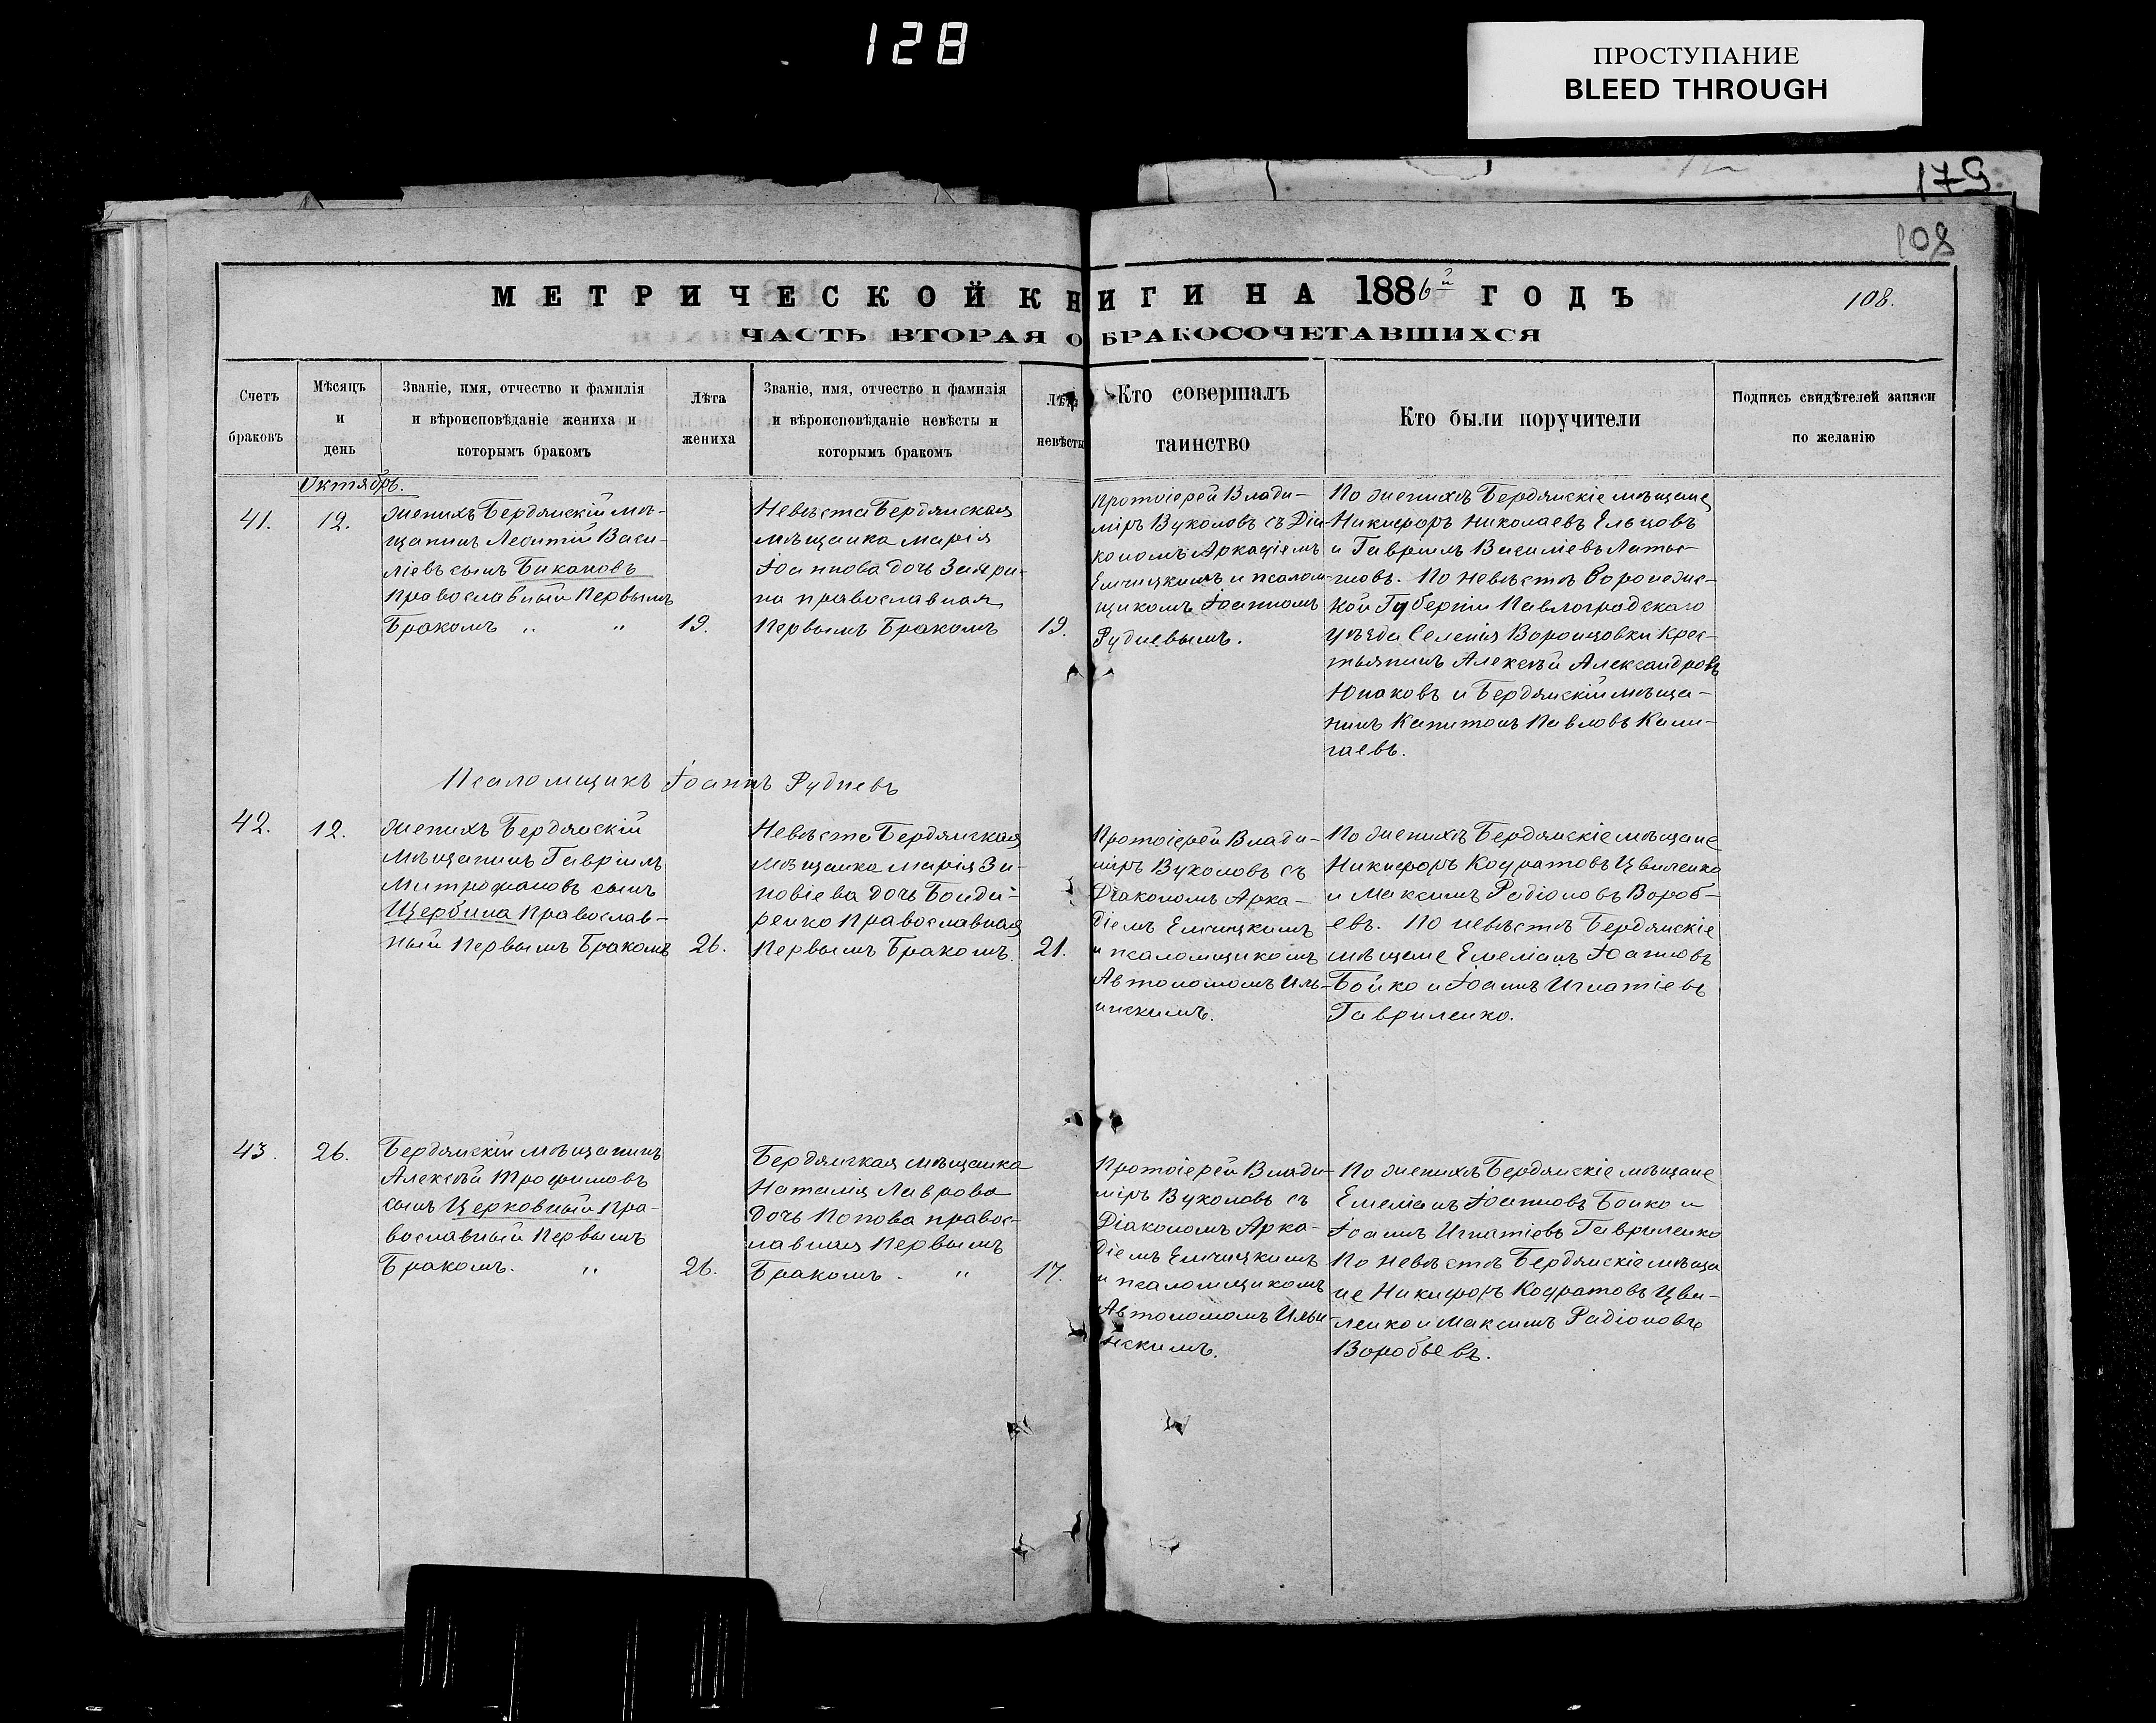 128
ПРОСТУПАНИЕ
BLEED THROUGH
179
108
МЕТРИЧЕСКОЙ КНИГИ НА 1886й ГОДЪ
108.
ЧАСТЬ ВТОРАЯ О БРАКОСОЧЕТАВШИХСЯ
Счетъ
браковъ
Мѣсяцъ
и
день
Званіе, имя, отчество и фамилія
и вѣроисповѣданіе жениха и
которымъ бракомъ
Лѣта
жениха
Званіе, имя, отчество и фамилія
и вѣроисповѣданіе невѣсты и
которымъ бракомъ
Лѣта
невѣсты
Кто совершалъ
таинство
Кто были поручители
Подпись свидѣтелей записи
по желанію
Октябрь.
41.
12.
Женихъ Бердянскій мѣ-
щанинъ Леонтій Васи-
ліевъ сынъ Бикановъ
Православный Первымъ
Бракомъ „ „
19.
Невѣста Бердянская
мѣщанка Марія
Іоаннова дочь
на православная
Первымъ Бракомъ
19.
Протоіерей Влади-
міръ Вуколовъ съ Діа-
кономъ Аркадіемъ
и псалом-
щикомъ Іоанномъ
Рудневымъ.
По женихѣ Бердянскіе мѣщане
Никифоръ Николаевъ Ельцовъ
и Гавріилъ Василіевъ Латы-
шовъ. По невѣстѣ Воронежс-
кой Губерніи Павлоградскаго
уѣзда Селенія Воронцовки крес-
тьянинъ Алексѣй Александровъ
Юнаковъ и Бердянскій мѣща-
нинъ Капитонъ Павловъ
Псаломщикъ Іоаннъ Рудневъ
42.
12.
Женихъ Бердянскій
мѣщанинъ Гавріилъ
Митрофановъ сынъ
Щербина Православ-
ный Первымъ Бракомъ
26.
Невѣста Бердянская
мѣщанка Марія Зи-
новіева дочь Бонда-
ренко Православная
Первымъ Бракомъ.
21.
Протоіерей Влади-
міръ Вуколовъ съ
Діакономъ Арка-
діемъ
и псаломщикомъ
Автономомъ Иль-
инскимъ.
По женихѣ Бердянскіе мѣщане
Никифоръ Кодратовъ Цвиленко
и Максимъ Радіоновъ Вороб-
евъ. По невѣстѣ Бердянскіе
мѣщане Емеліанъ Іоанновъ
Бойко и Іоаннъ Игнатіевъ
Гавриленко.
43.
26.
Бердянскій мѣщанинъ
Алексѣй Трофимовъ
сынъ Церковный пра-
вославный Первымъ
Бракомъ. „
26.
Бердянская мѣщанка
Наталія Лаврова
дочь Попова правос-
лавная Первымъ
Бракомъ. „
17.
Протоіерей Влади-
міръ Вуколовъ съ
Діакономъ Арка-
діемъ
и псаломщикомъ
Автономомъ Ильи-
нскимъ.
По женихѣ Бердянскіе мѣщане
Емеліанъ Іоанновъ Бойко и
Іоаннъ Игнатіевъ Гавриленко
По невѣстѣ Бердянскіе мѣща
не Никифоръ Кодратовъ Цви-
ленко и Максимъ Радіоновъ
Воробьевъ.